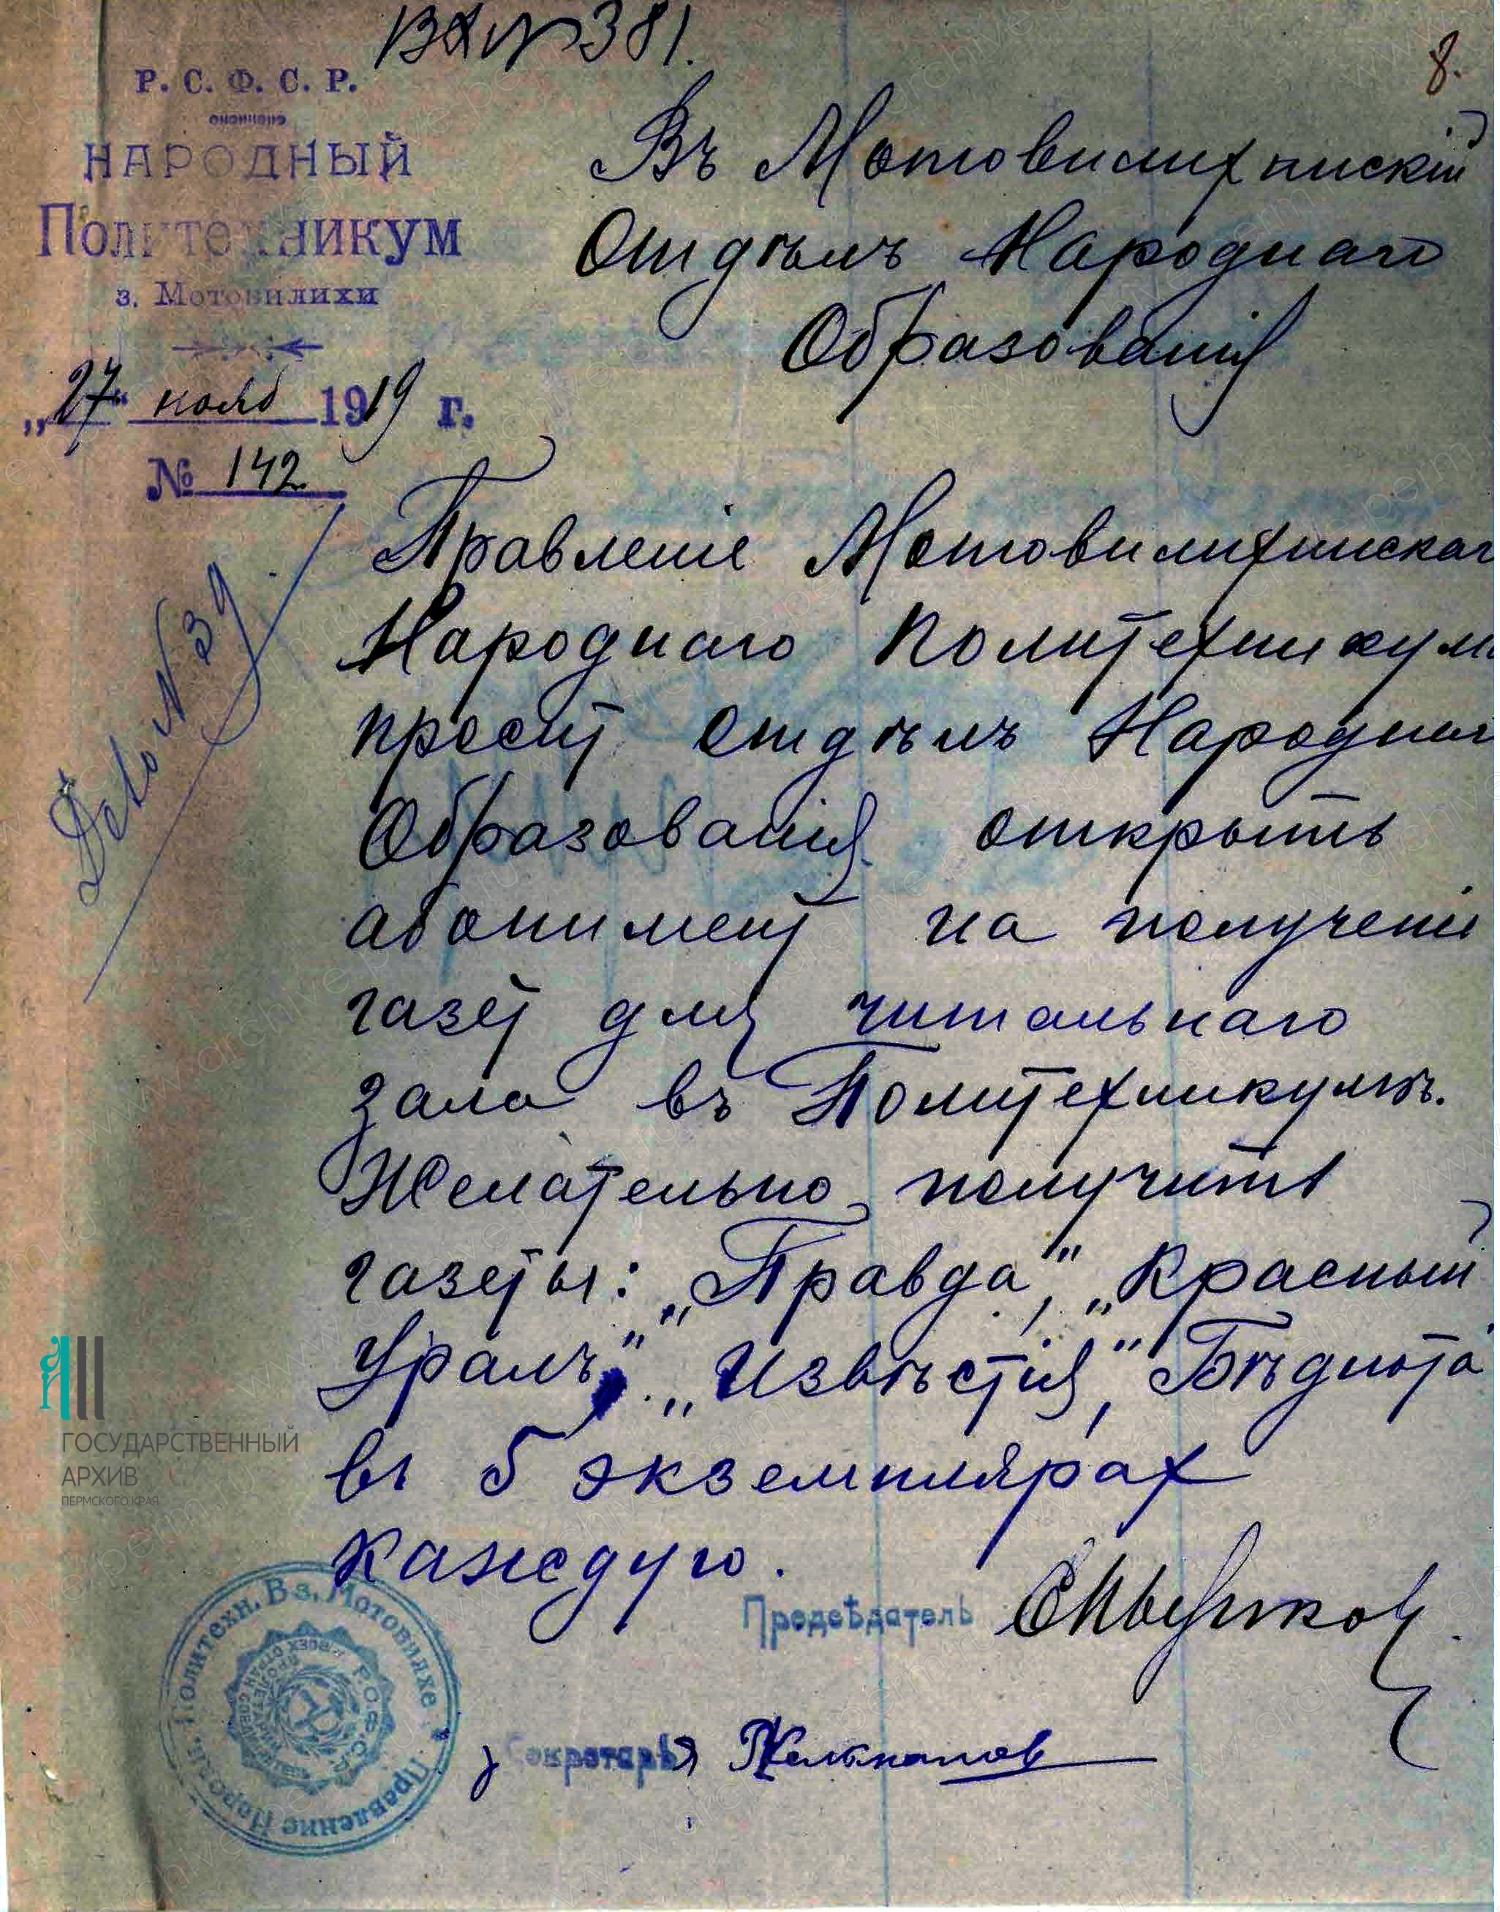 Вх № 381.
8.
Р. С. Ф. С. Р.
НАРОДНЫЙ
Политехникум
з. Мотовилихи
„27“ нояб 1919 г.
№ 142
Дело N 39
Въ Мотовилихинскій
Отдѣлъ Народнаго
Образованія
Правленіе Мотовилихинскаг
Народнаго Политехникума
просит Отдѣлъ Народнаг
Образованія открыть
абонимент на полученіе
газет для читальнаго
зала въ Политехникумѣ.
Желательно получить
газеты: „Правда“, „Красный
Уралъ“, „Извѣстія“, Бѣднота
въ 5 экземплярах
каждую.
Предсѣдатель
Секретарь
Правление Народн. Политехн. В з. Мотовилихе
Р.С.Ф.С.Р.
ГОСУДАРСТВЕННЫЙ
АРХИВ
ПЕРМСКОГО КРАЯ